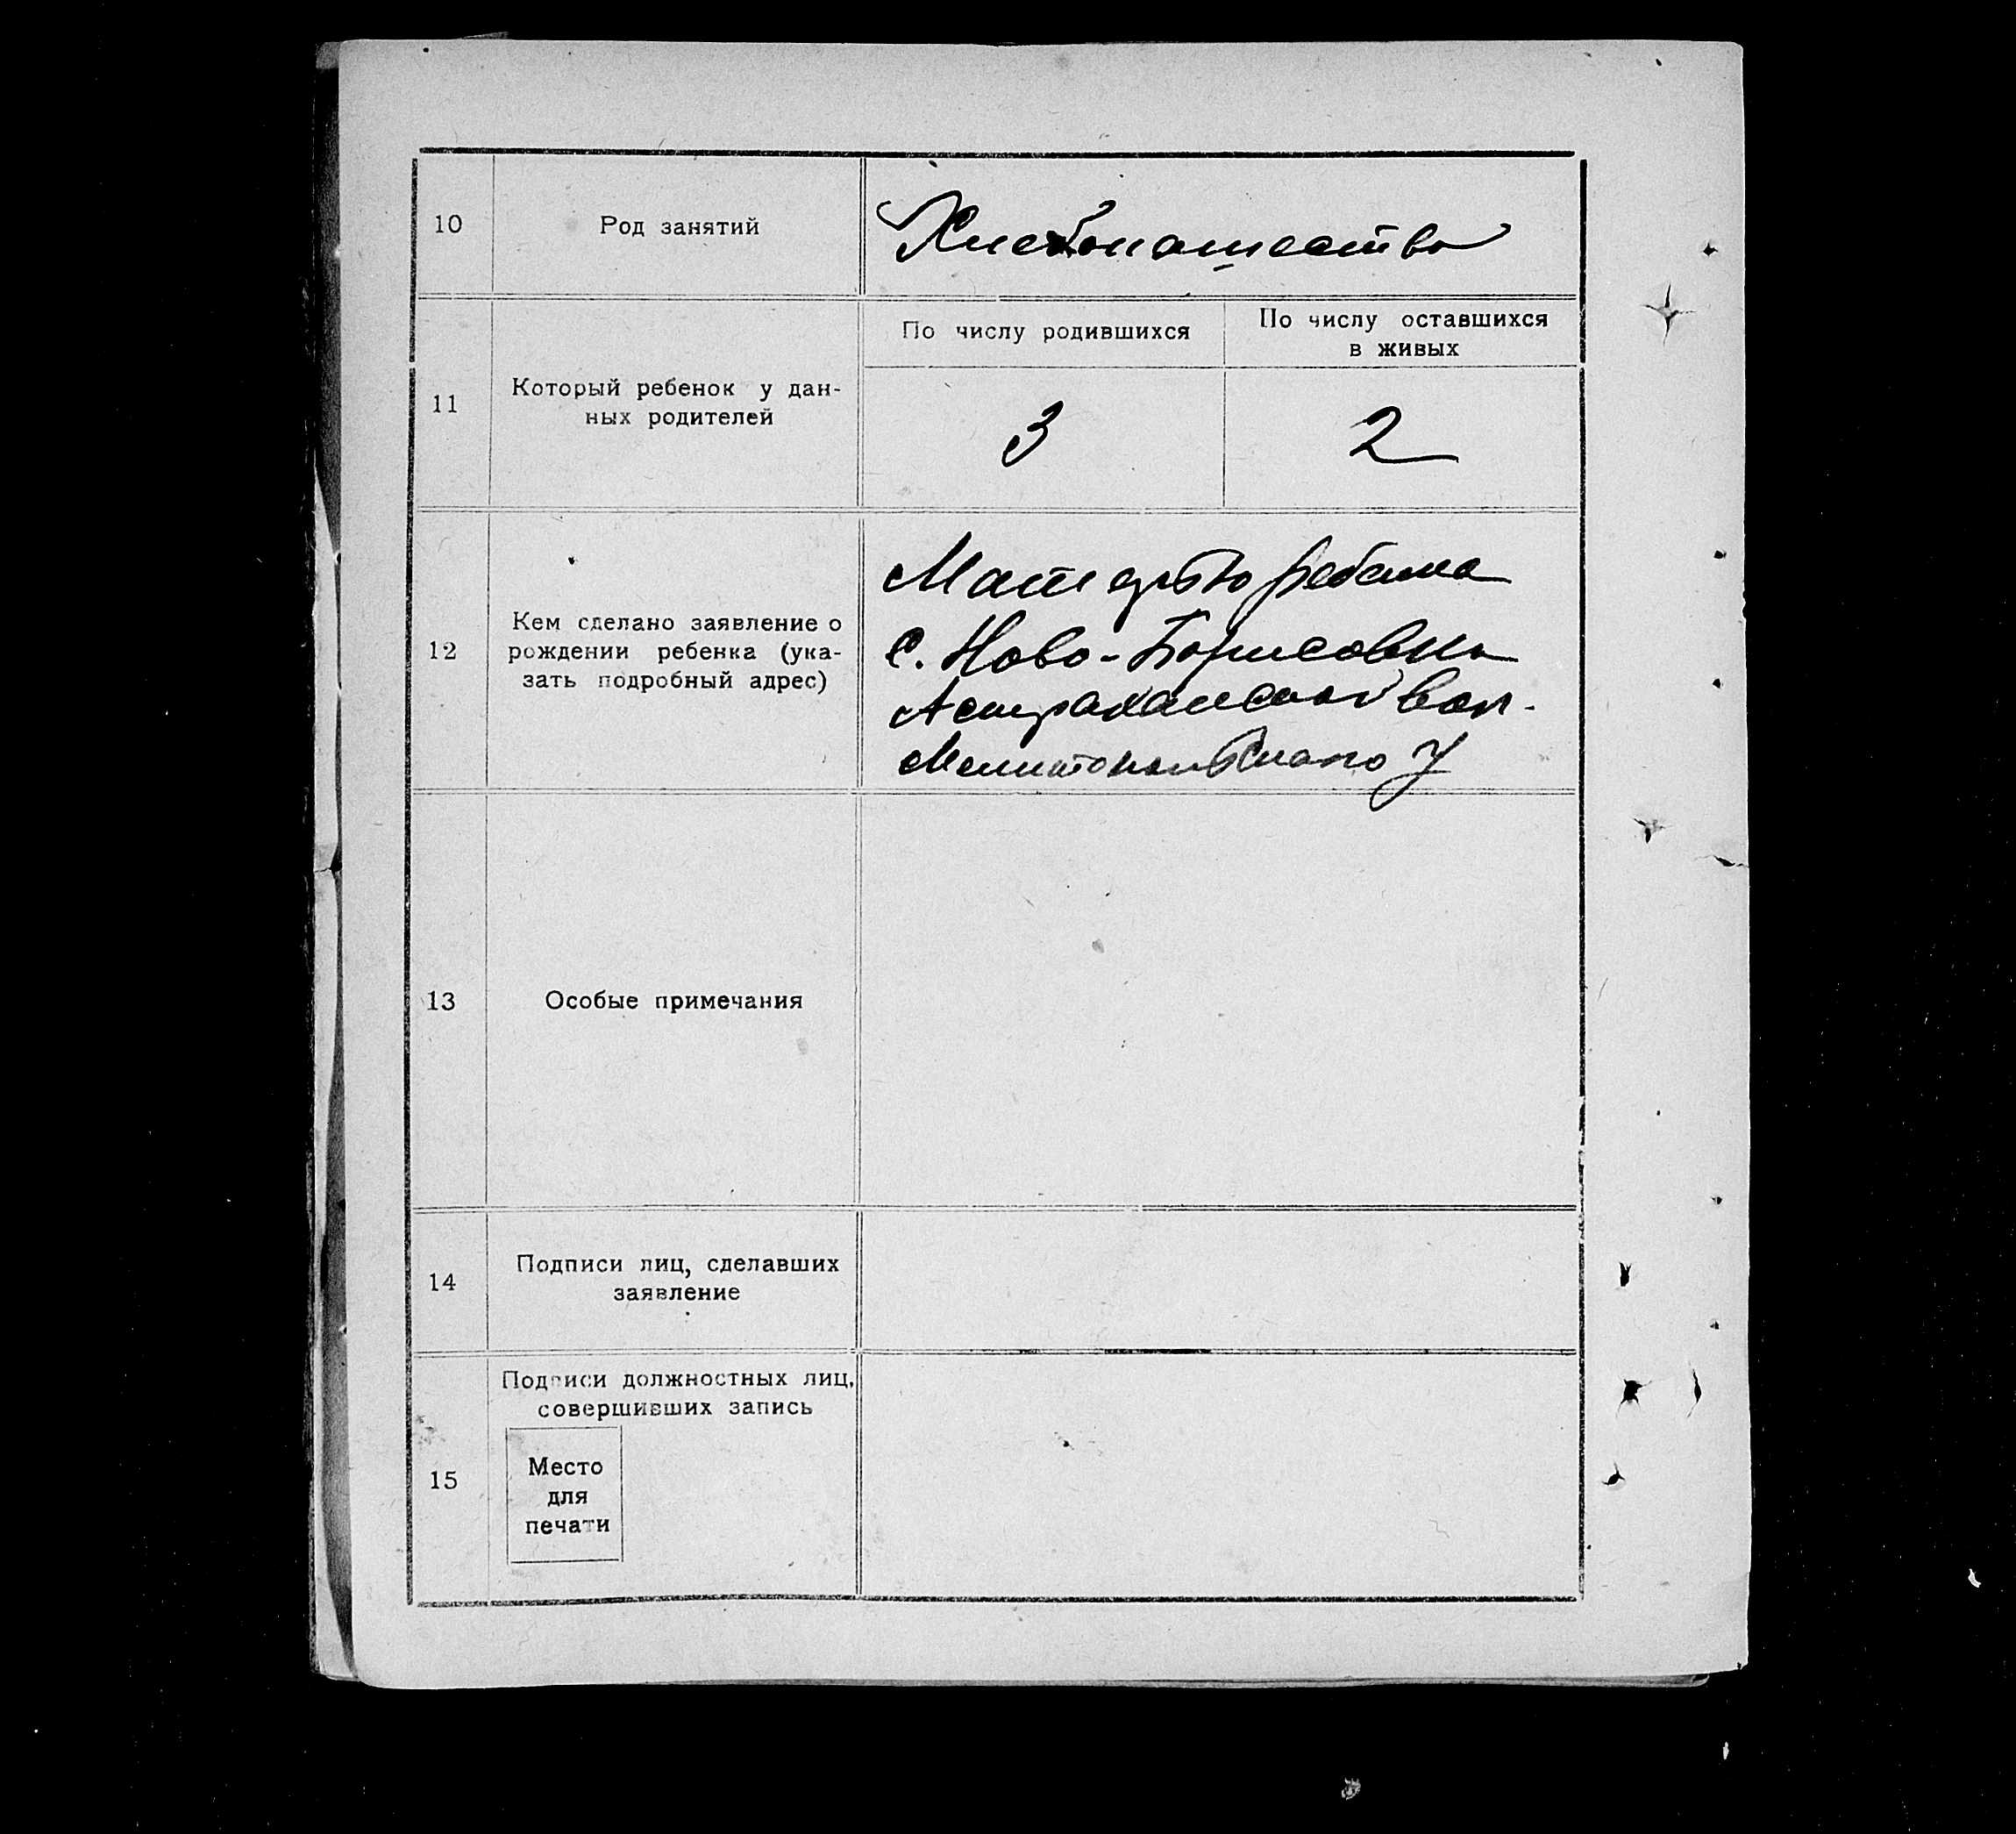 10
Род занятий
Хлебопашество
11
Который ребенок у дан-
ных родителей
По числу родившихся
По числу оставшихся
в живых
3
2
12
Кем сделано заявление о
рождении ребенка (ука-
зать подробный адрес)
Матерью ребенка
с. Ново-Борисовки
Астраханской вол.
Мелитопольского У
13
Особые примечания
14
Подписи лиц, сделавших
заявление
15
Подписи должностных лиц,
совершивших запись
Место
для
печати